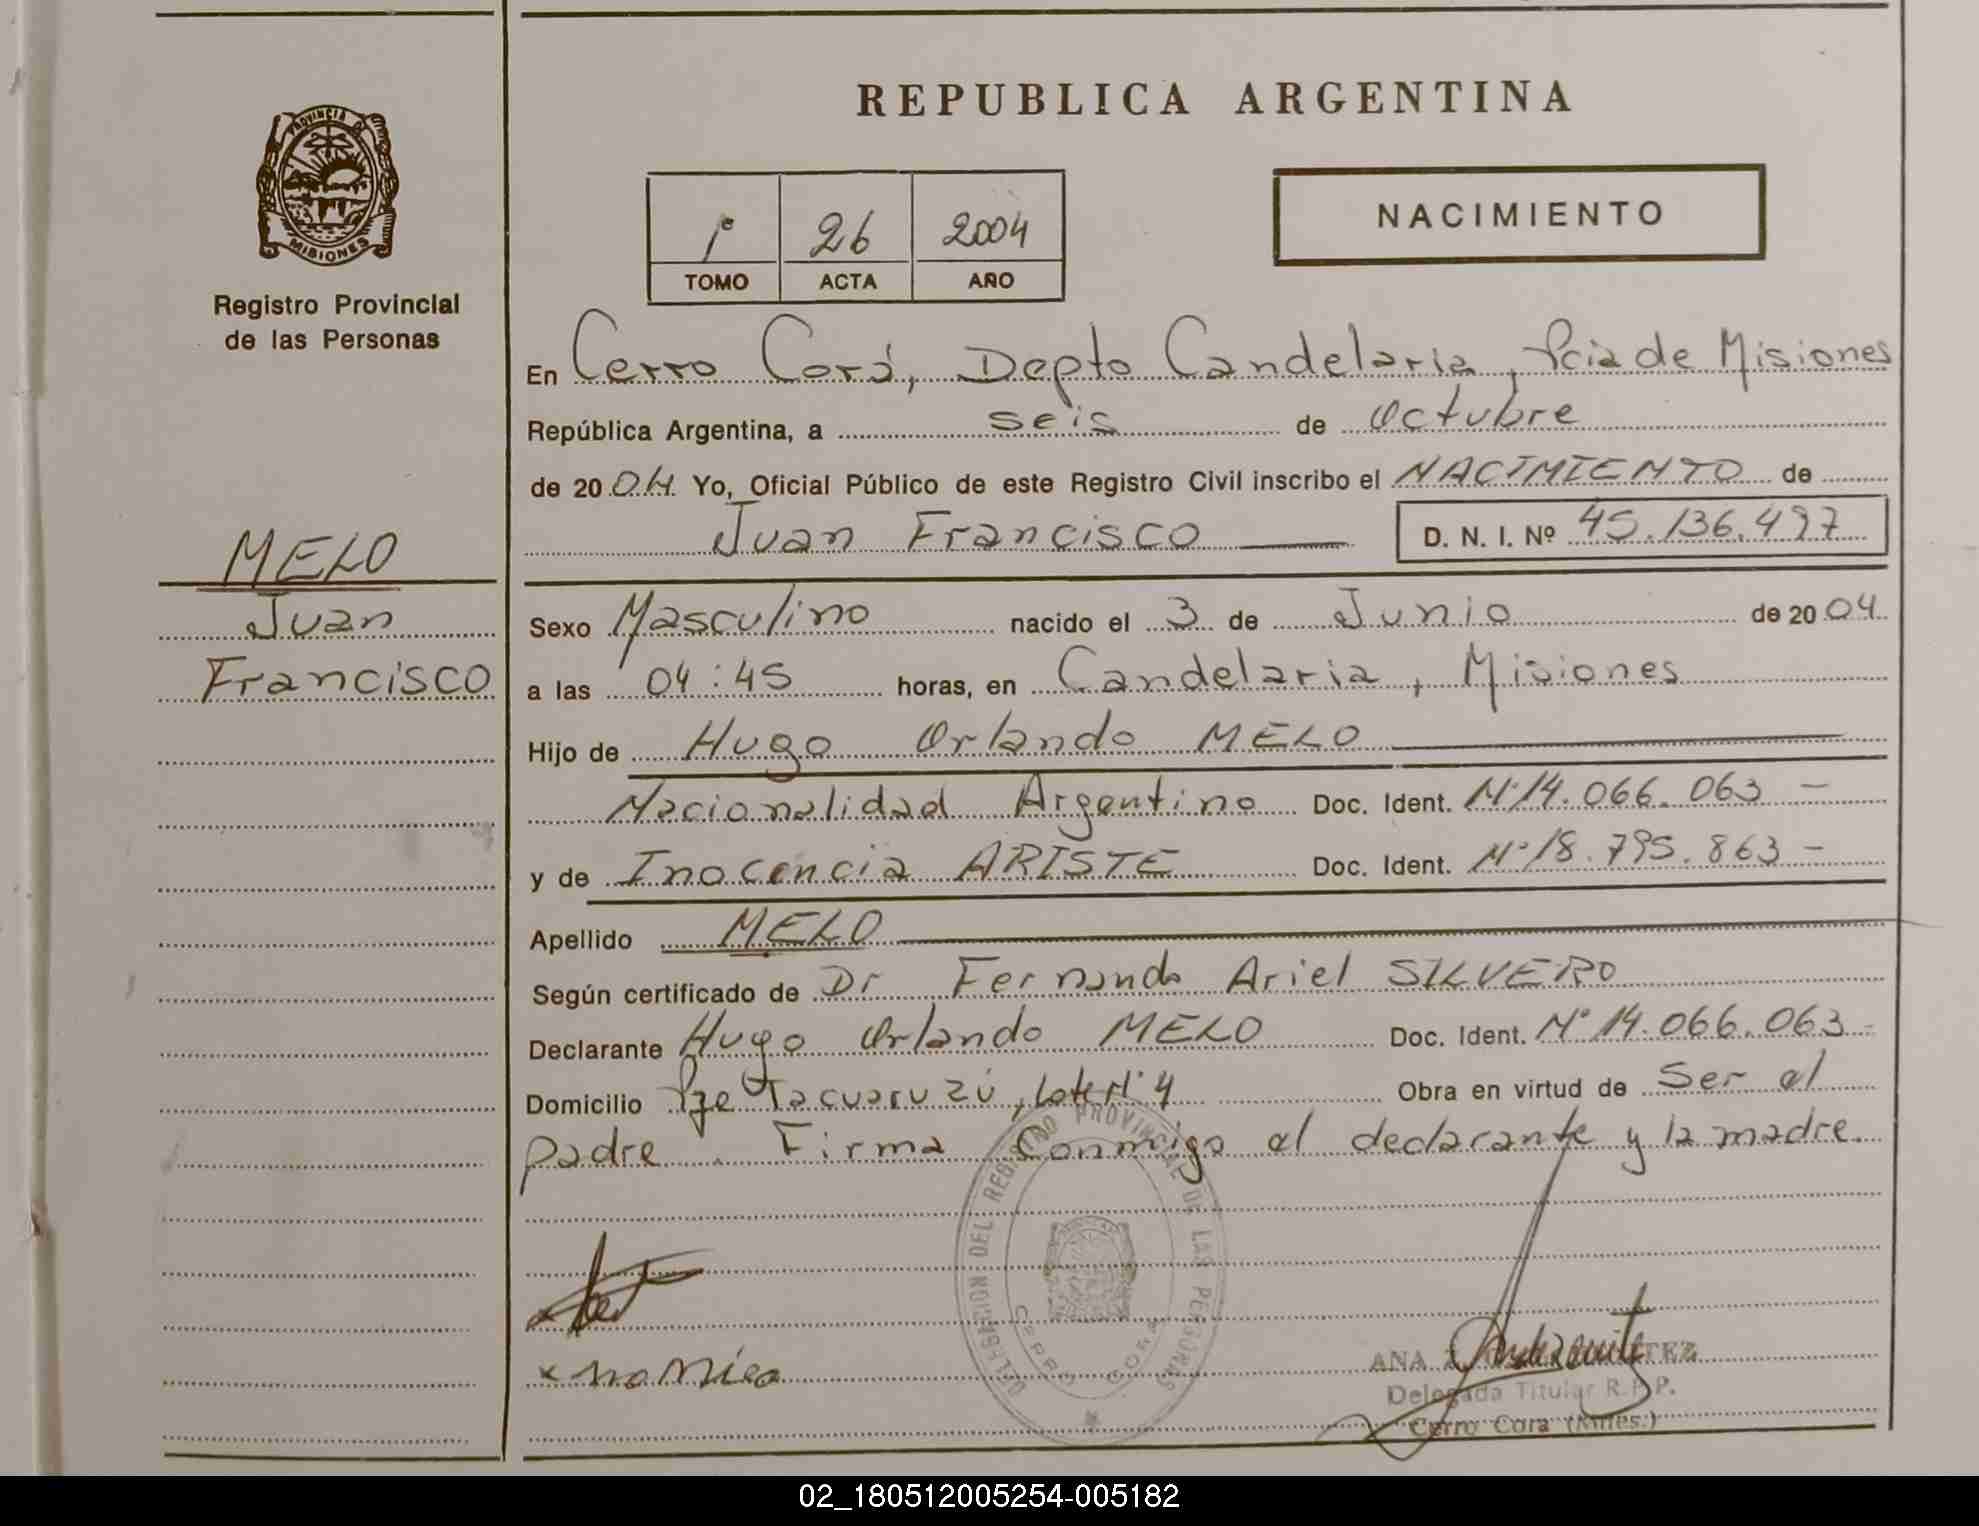 REPUBLICA ARGENTINA
PROVINCIA DE
MISIONES
Registro Provincial
de las Personas
1º 26 2004
TOMO ACTA AÑO
NACIMIENTO
En Cerro Corá, Depto Candelaria, Pcia de Misiones
República Argentina, a seis de Octubre
de 2004 Yo, Oficial Público de este Registro Civil inscribo el NACIMIENTO de
Juan Francisco D. N. I. Nº 45.136.497
MELO
Juan
Francisco
Sexo Masculino nacido el 3 de Junio de 2004
a las 04:45 horas, en Candelaria, Misiones
Hijo de Hugo Orlando MELO
Nacionalidad Argentino Doc. Ident. Nº 14.066.063 -
y de Inocencia ARISTE Doc. Ident. Nº 18.795.863 -
Apellido MELO
Según certificado de Dr Fernando Ariel SILVERO
Declarante Hugo Orlando MELO Doc. Ident. Nº 14.066.063 -
Domicilio Pje Tacuaruzú, Lote Nº 4 Obra en virtud de Ser el
padre. Firma Conmigo el declarante y la madre.
DELEGACION DEL REGISTRO PROVINCIAL DE LAS PERSONAS
CERRO CORA
ANA
Delegada Titular R.P.P.
Cerro Cora (Mnes.)
02_180512005254-005182